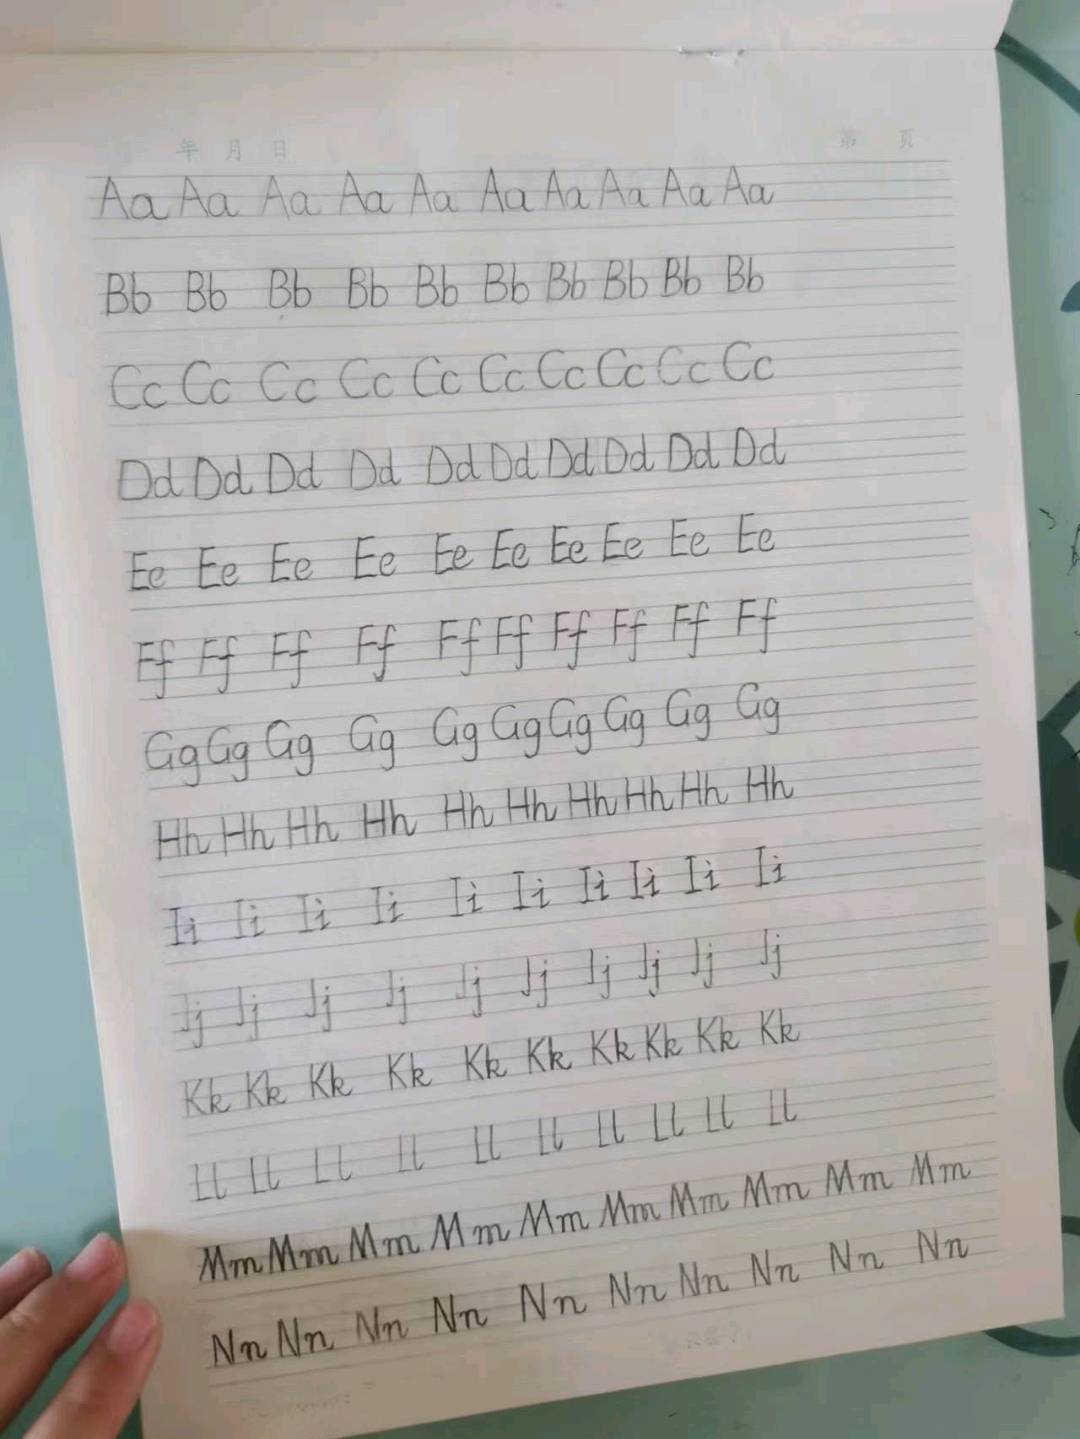 年 月 日 第 页
Aa Aa Aa Aa Aa Aa Aa Aa Aa Aa
Bb Bb Bb Bb Bb Bb Bb Bb Bb Bb
Cc Cc Cc Cc Cc Cc Cc Cc Cc Cc
Dd Dd Dd Dd Dd Dd Dd Dd Dd Dd
Ee Ee Ee Ee Ee Ee Ee Ee Ee Ee
Ff Ff Ff Ff Ff Ff Ff Ff Ff Ff
Gg Gg Gg Gg Gg Gg Gg Gg Gg Gg
Hh Hh Hh Hh Hh Hh Hh Hh Hh Hh
Ii Ii Ii Ii Ii Ii Ii Ii Ii Ii
Jj Jj Jj Jj Jj Jj Jj Jj Jj Jj
Kk Kk Kk Kk Kk Kk Kk Kk Kk Kk
Ll Ll Ll Ll Ll Ll Ll Ll Ll Ll
Mm Mm Mm Mm Mm Mm Mm Mm Mm Mm
Nn Nn Nn Nn Nn Nn Nn Nn Nn Nn